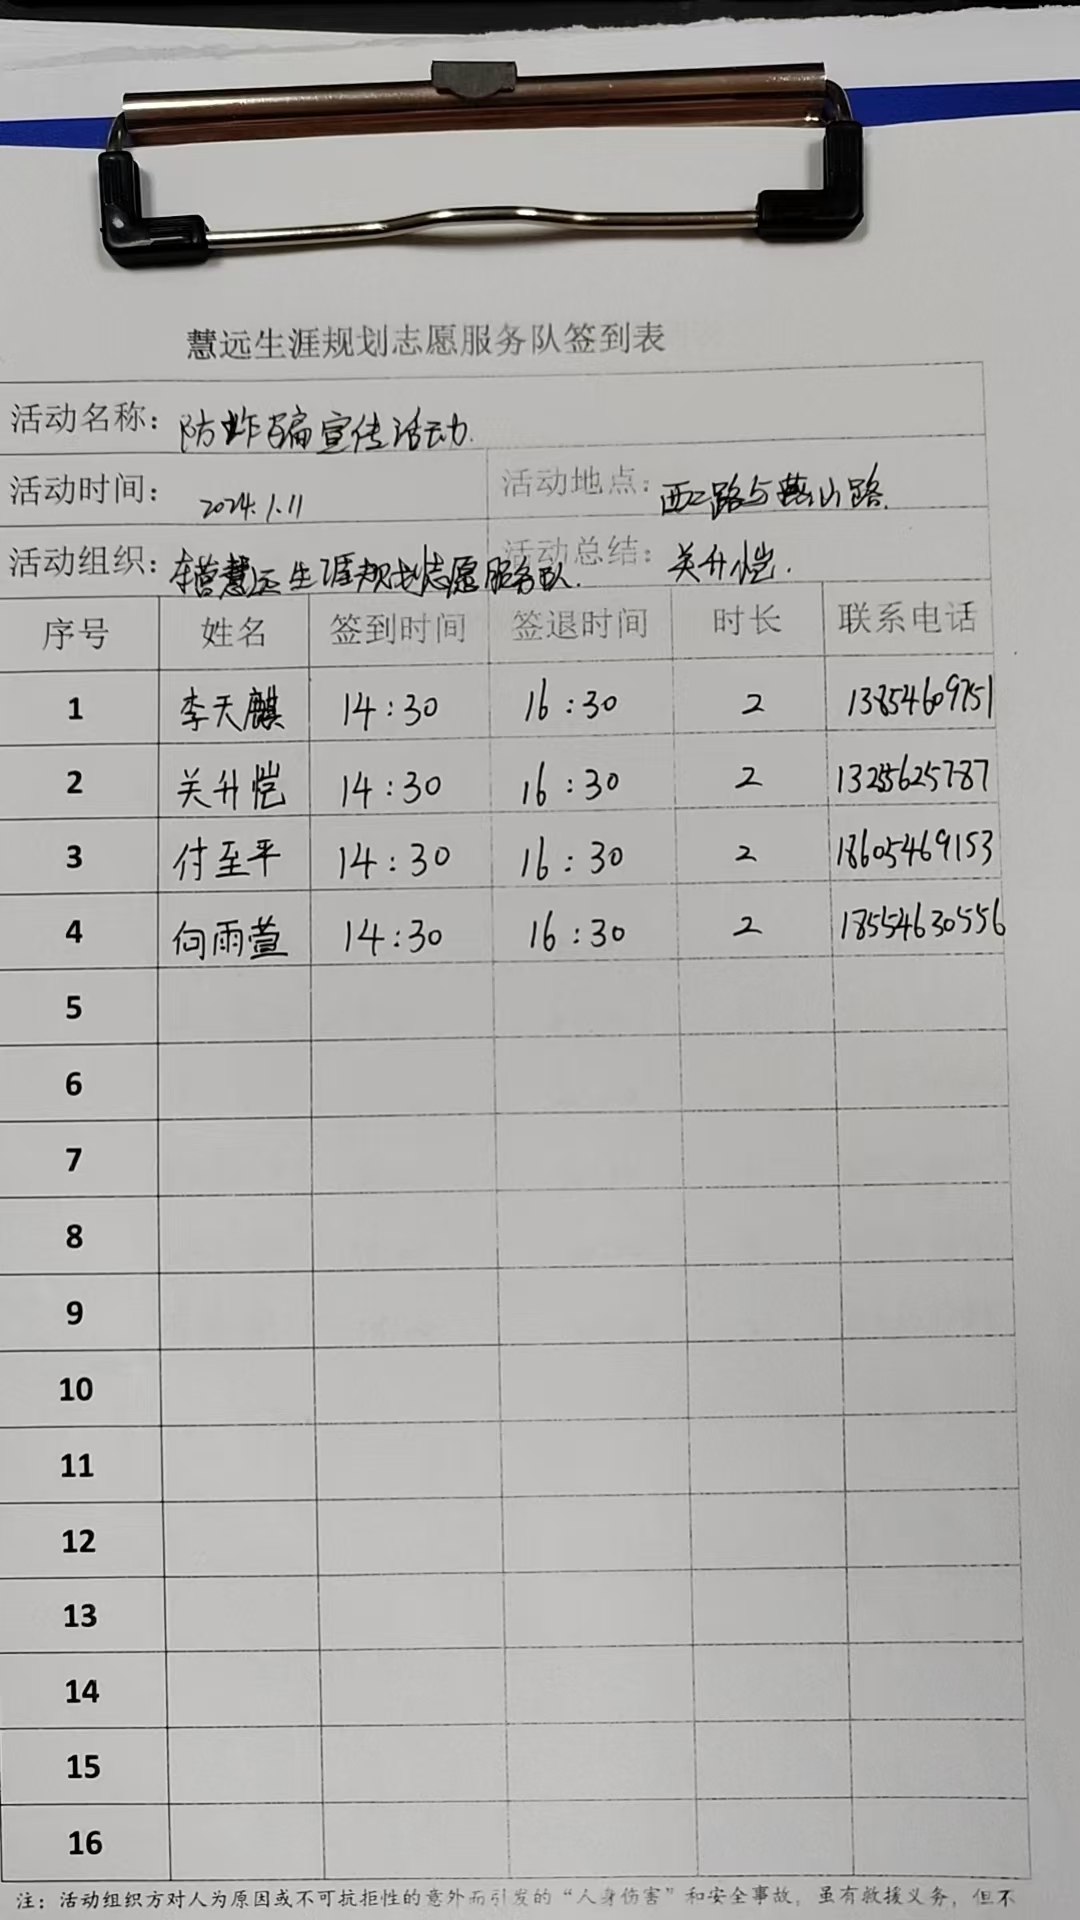 慧远生涯规划志愿服务队签到表
活动名称： 防炸骗宣传活动.
活动时间： 2024.1.11 活动地点： 西二路与燕山路.
活动组织： 东营慧远生涯规划志愿服务队. 活动总结： 关升恺.
序号 姓名 签到时间 签退时间 时长 联系电话
1 李天麒 14:30 16:30 2 13854609751
2 关升恺 14:30 16:30 2
3 付至平 14:30 16:30 2 18605469153
4 向雨萱 14:30 16:30 2 18554630556
5
6
7
8
9
10
11
12
13
14
15
16
注：活动组织方对人为原因或不可抗拒性的意外而引发的“人身伤害”和安全事故，虽有救援义务，但不